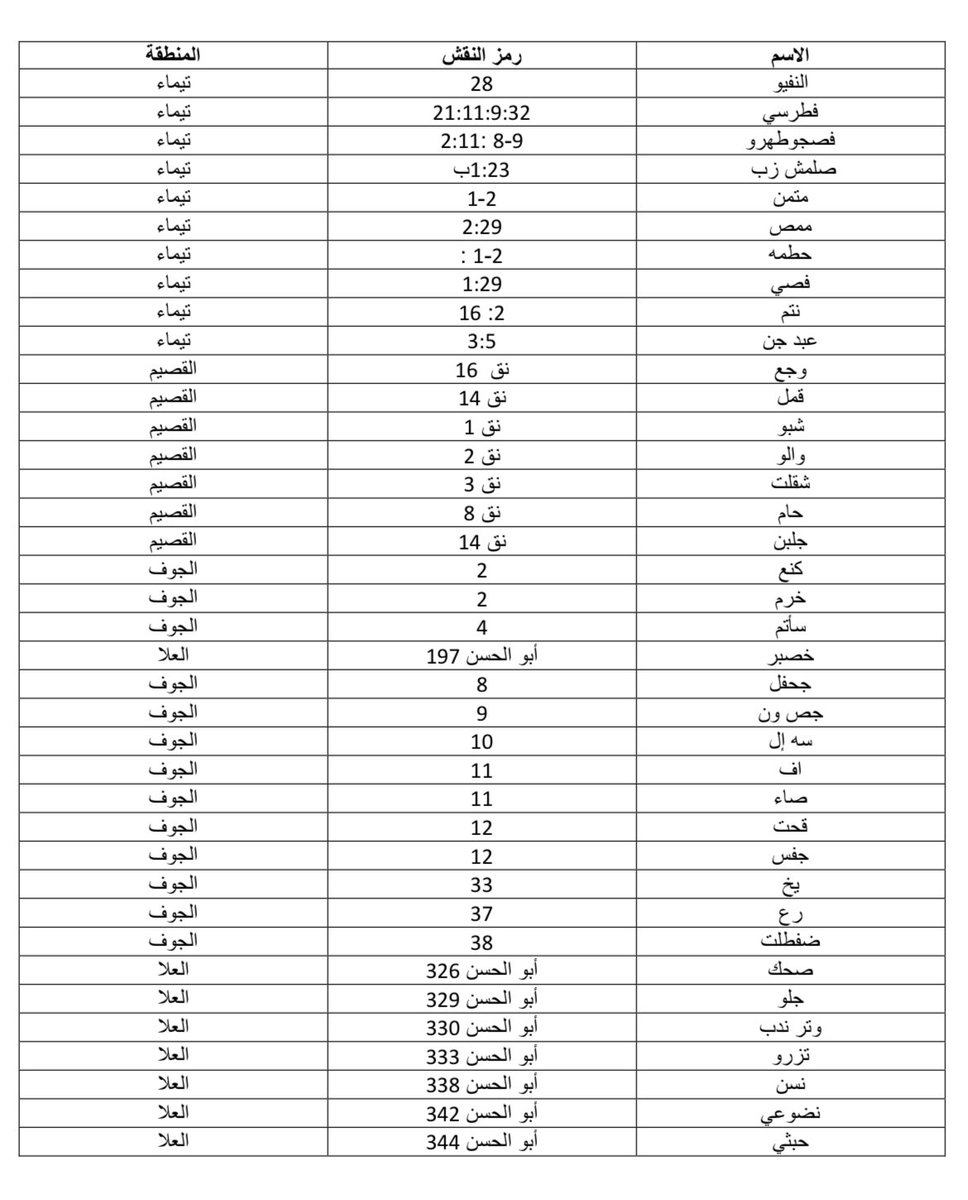 الاسم رمز النقش المنطقة
النفيو 28 تيماء
فطرسي 21:11:9:32 تيماء
فصجوطهرو 2:11: 8-9 تيماء
صلمش زب 1:23ب تيماء
متمن 1-2 تيماء
ممص 2:29 تيماء
حطمه 1-2 : تيماء
فصي 1:29 تيماء
نتم 2: 16 تيماء
عبد جن 3:5 تيماء
وجع نق 16 القصيم
قمل نق 14 القصيم
شبو نق 1 القصيم
والو نق 2 القصيم
شقلت نق 3 القصيم
حام نق 8 القصيم
جلبن نق 14 القصيم
كنع 2 الجوف
خرم 2 الجوف
سأتم 4 الجوف
خصبر أبو الحسن 197 العلا
جحفل 8 الجوف
جص ون 9 الجوف
سه إل 10 الجوف
اف 11 الجوف
صاء 11 الجوف
قحت 12 الجوف
جفس 12 الجوف
يخ 33 الجوف
رع 37 الجوف
ضفطلت 38 الجوف
صحك أبو الحسن 326 العلا
جلو أبو الحسن 329 العلا
وتر ندب أبو الحسن 330 العلا
تزرو أبو الحسن 333 العلا
نسن أبو الحسن 338 العلا
نضوعي أبو الحسن 342 العلا
حبثي أبو الحسن 344 العلا